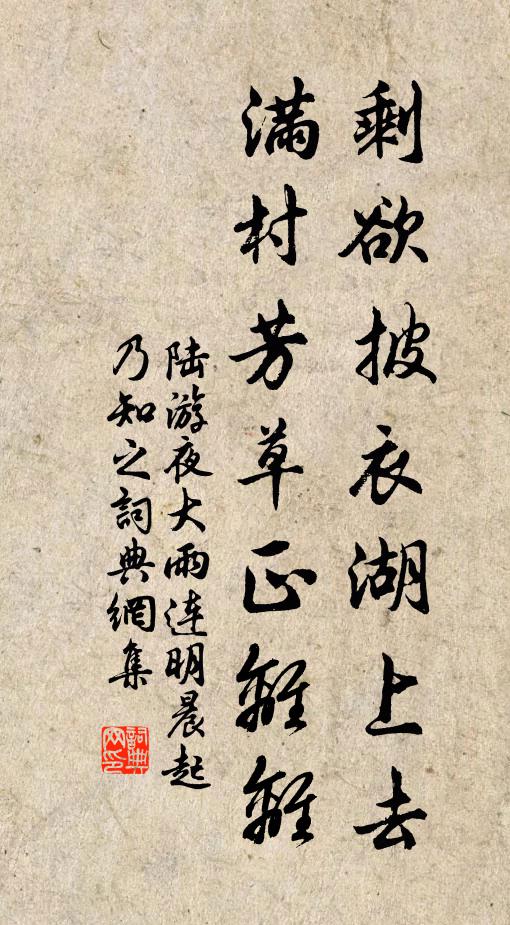 剩欲披衣湖上去
滿村芳草正離離
陆游夜大雨连明晨起
乃知之詞典網集
詞典
网印